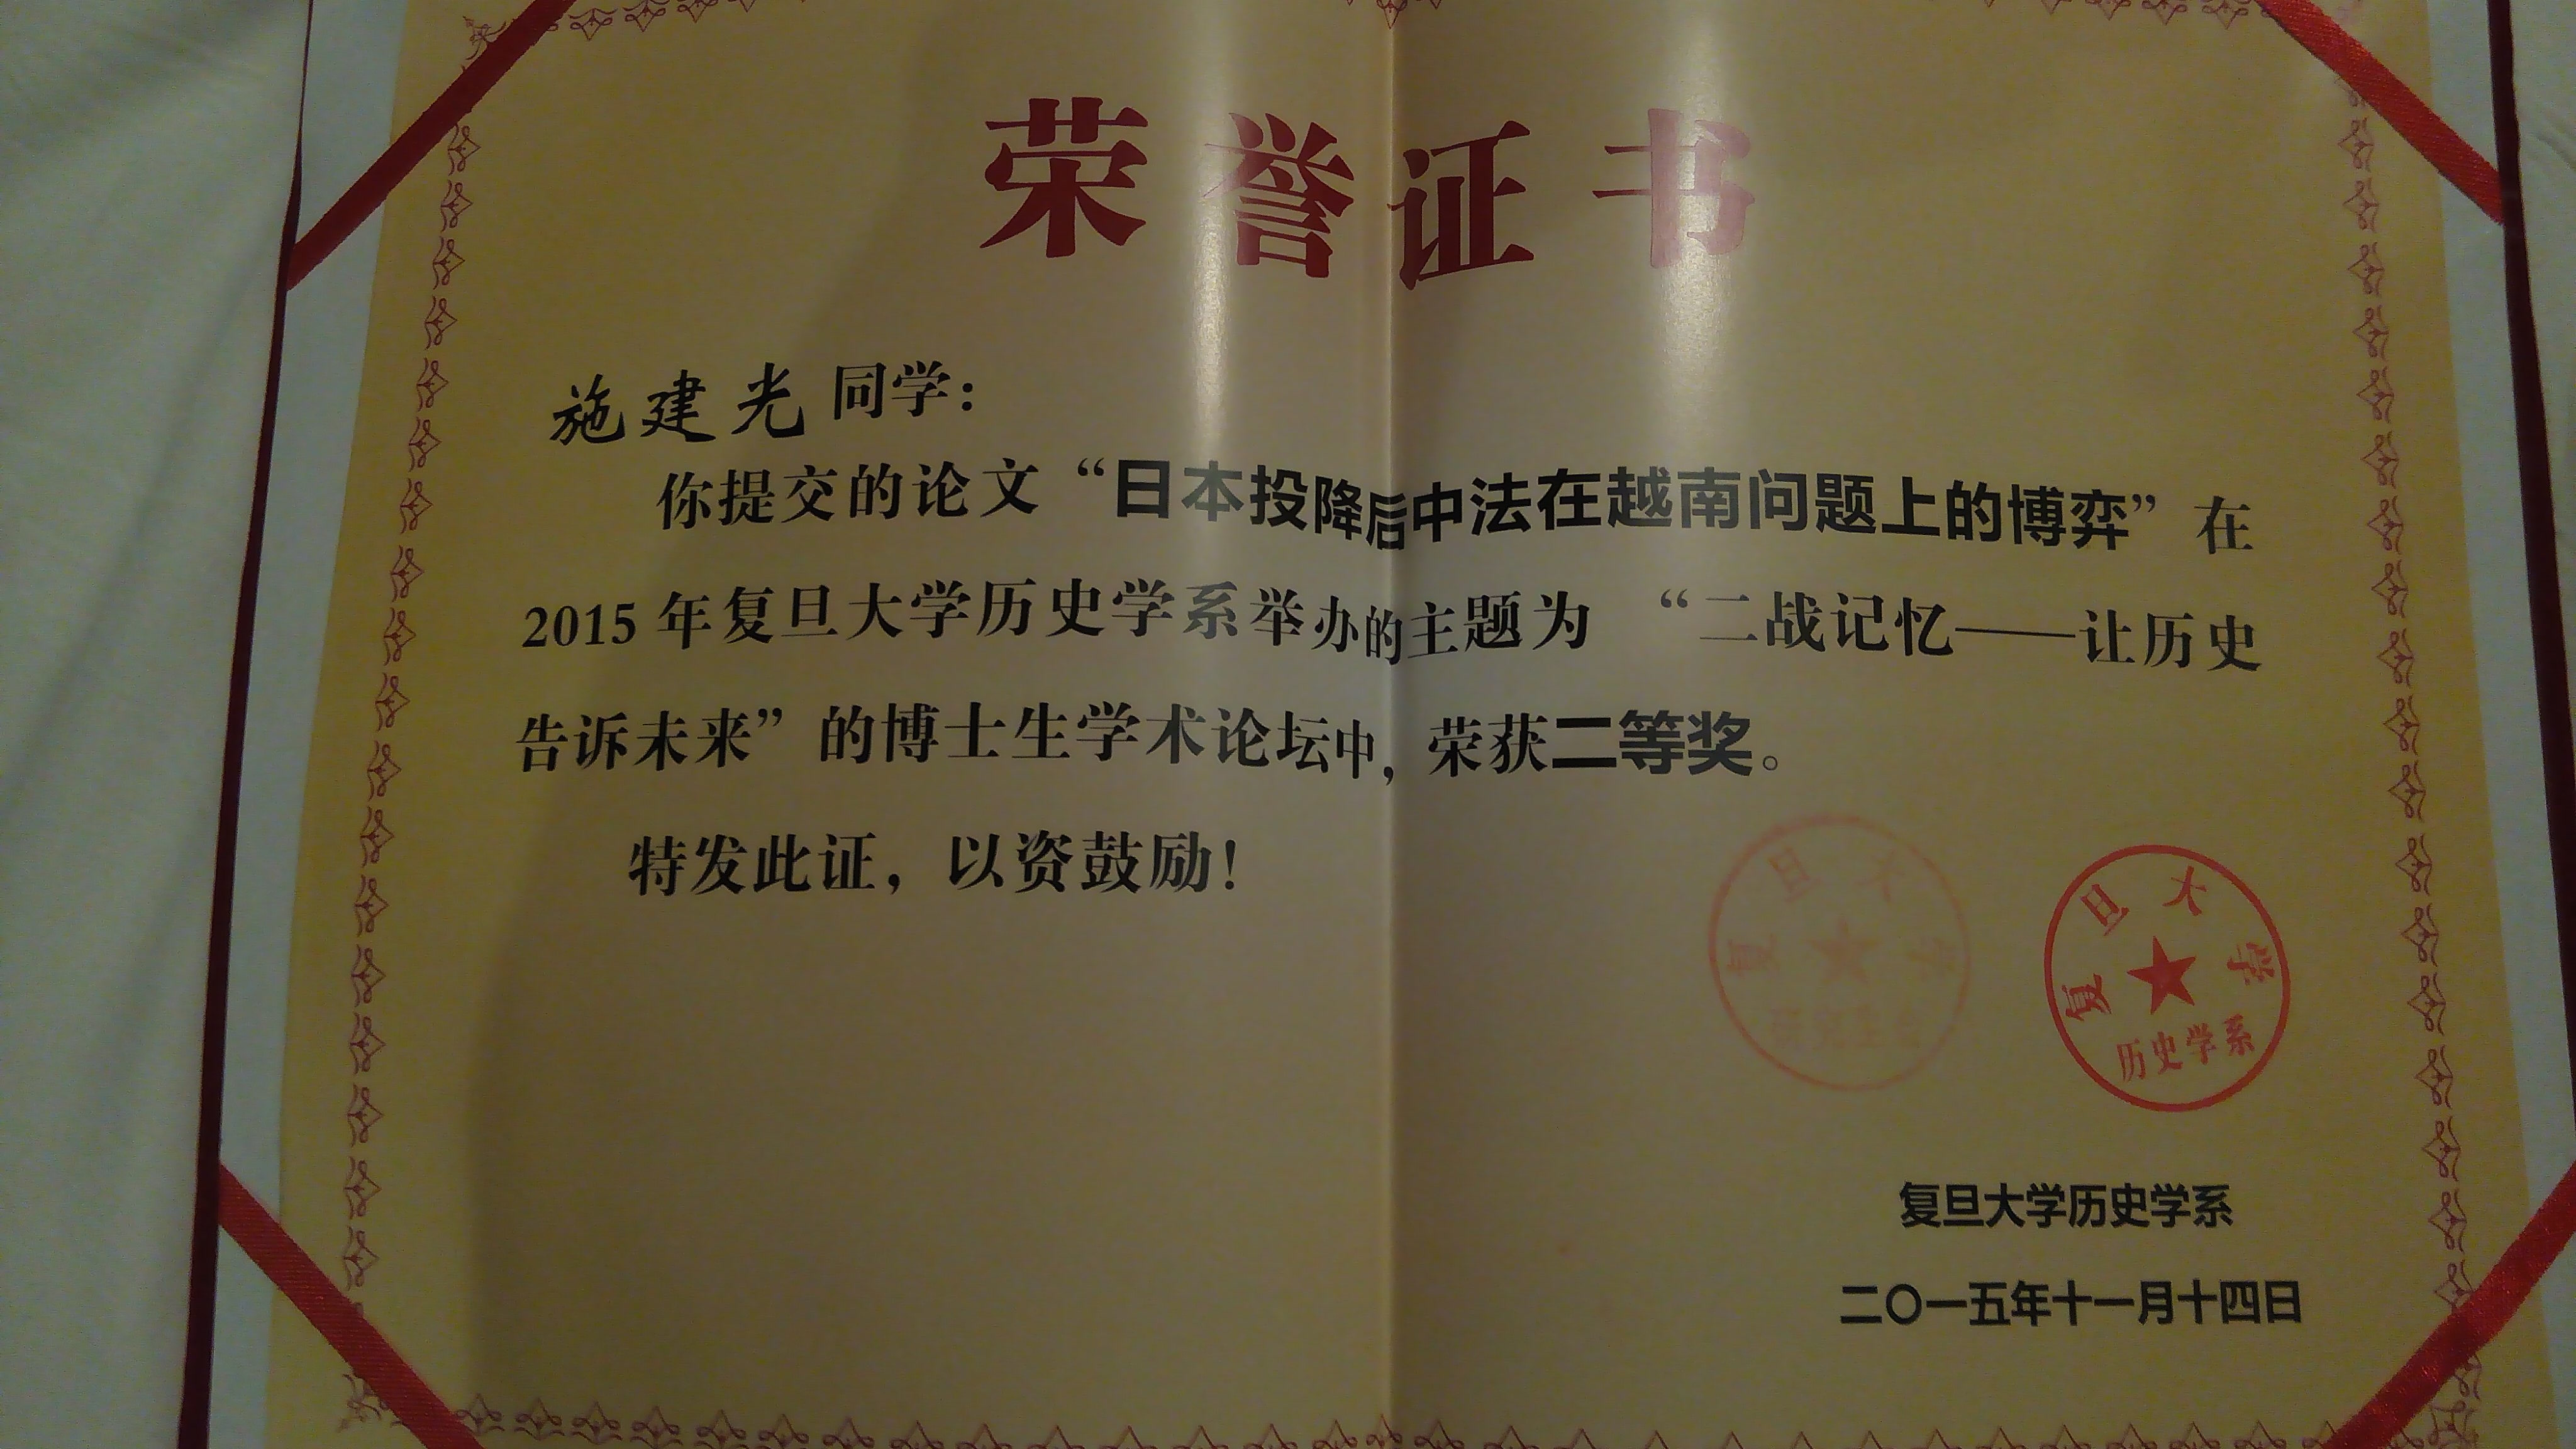 荣誉证书
施建光同学：
你提交的论文“日本投降后中法在越南问题上的博弈”在
2015年复旦大学历史学系举办的主题为 “二战记忆——让历史
告诉未来”的博士生学术论坛中，荣获二等奖。
特发此证，以资鼓励！
复旦大学
复旦大学
历史学系
复旦大学历史学系
二〇一五年十一月十四日